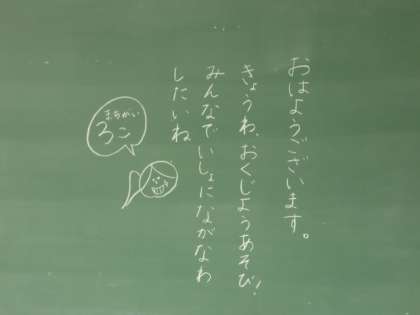 おはようございます。
きょうわ、おくじようあそび!
みんなでいしょにながなわ
したいね。
まちがい
3こ